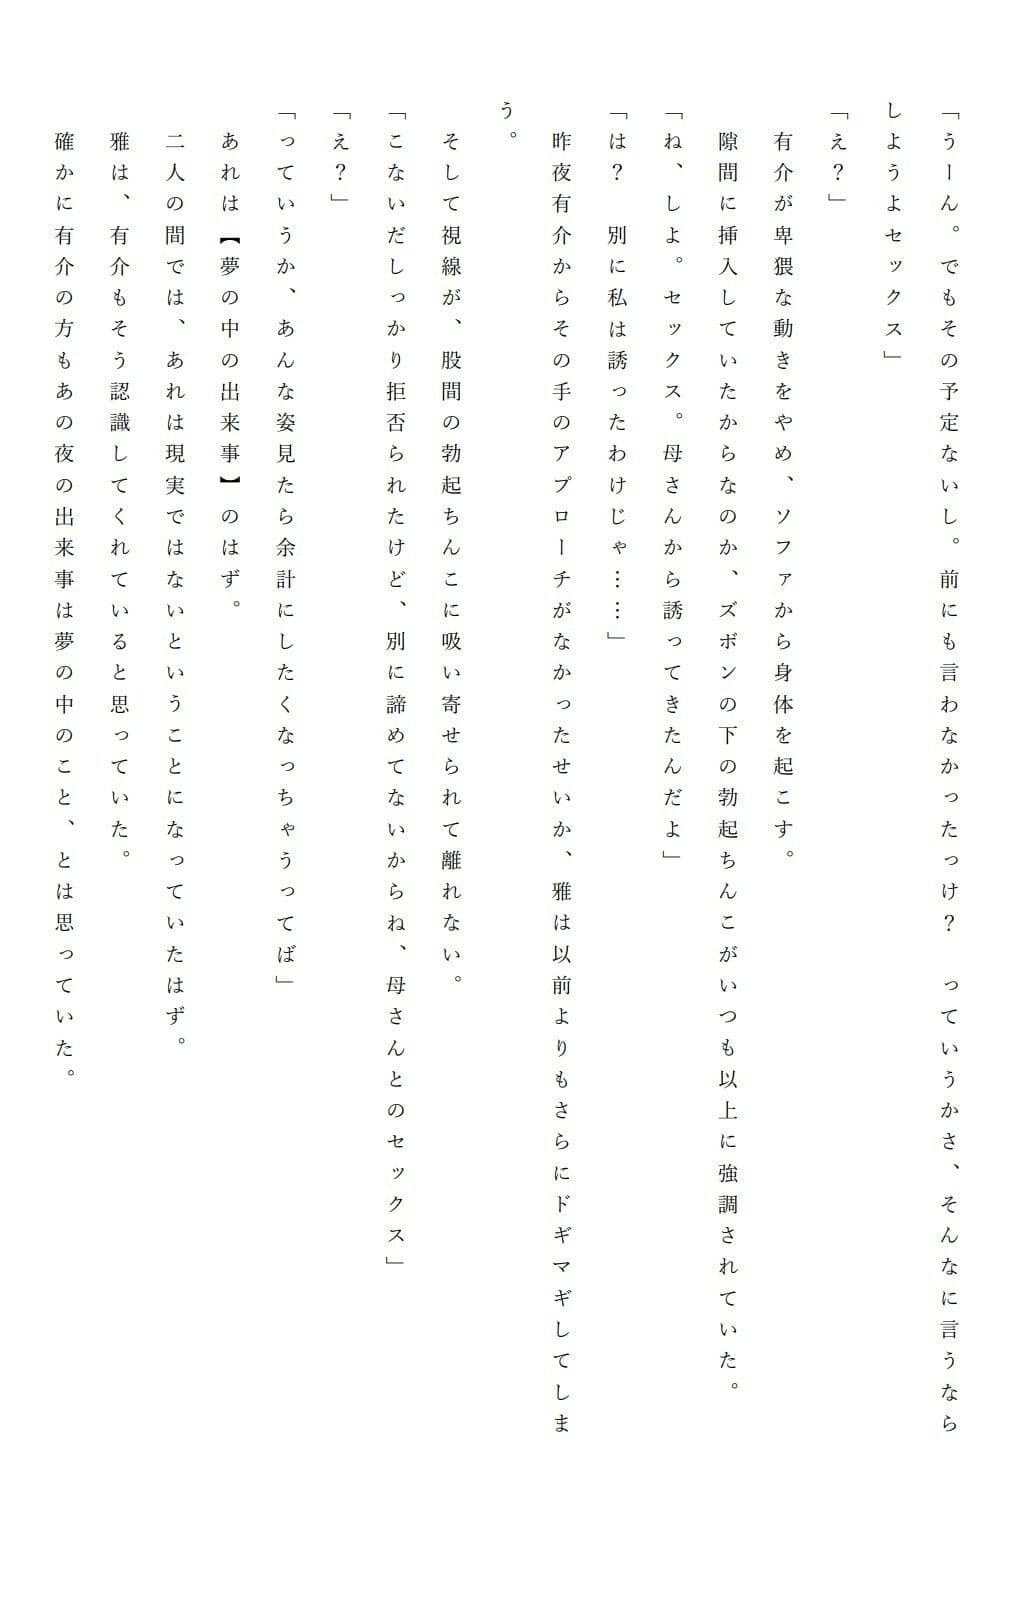 「うーん。でもその予定ないし。前にも言わなかったっけ？　っていうかさ、そんなに言うなら
しようよセックス」
「え？」
　有介が卑猥な動きをやめ、ソファから身体を起こす。
　隙間に挿入していたからなのか、ズボンの下の勃起ちんこがいつも以上に強調されていた。
「ね、しよ。セックス。母さんから誘ってきたんだよ」
「は？　別に私は誘ったわけじゃ……」
　昨夜有介からその手のアプローチがなかったせいか、雅は以前よりもさらにドギマギしてしま
う。
　そして視線が、股間の勃起ちんこに吸い寄せられて離れない。
「こないだしっかり拒否られたけど、別に諦めてないからね、母さんとのセックス」
「え？」
「っていうか、あんな姿見たら余計にしたくなっちゃうってば」
　あれは【夢の中の出来事】のはず。
　二人の間では、あれは現実ではないということになっていたはず。
　雅は、有介もそう認識してくれていると思っていた。
　確かに有介の方もあの夜の出来事は夢の中のこと、とは思っていた。